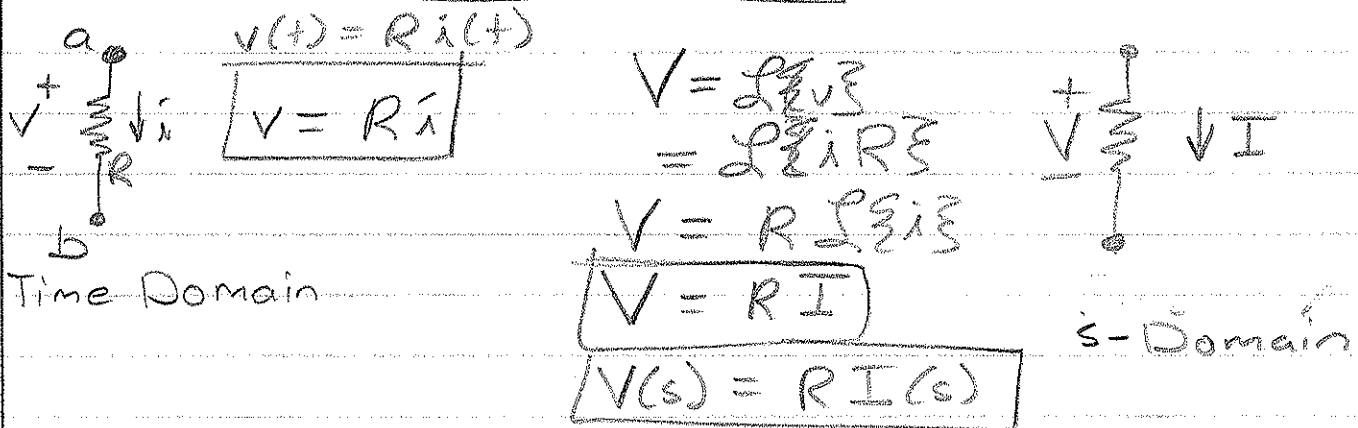 v(t) = R i(t)
a
+
v
-
↓ i
R
b
v = R i
Time Domain
V = ℒ{v}
= ℒ{iR}
V = R ℒ{i}
V = R I
V(s) = R I(s)
+
V
-
↓ I
s-Domain